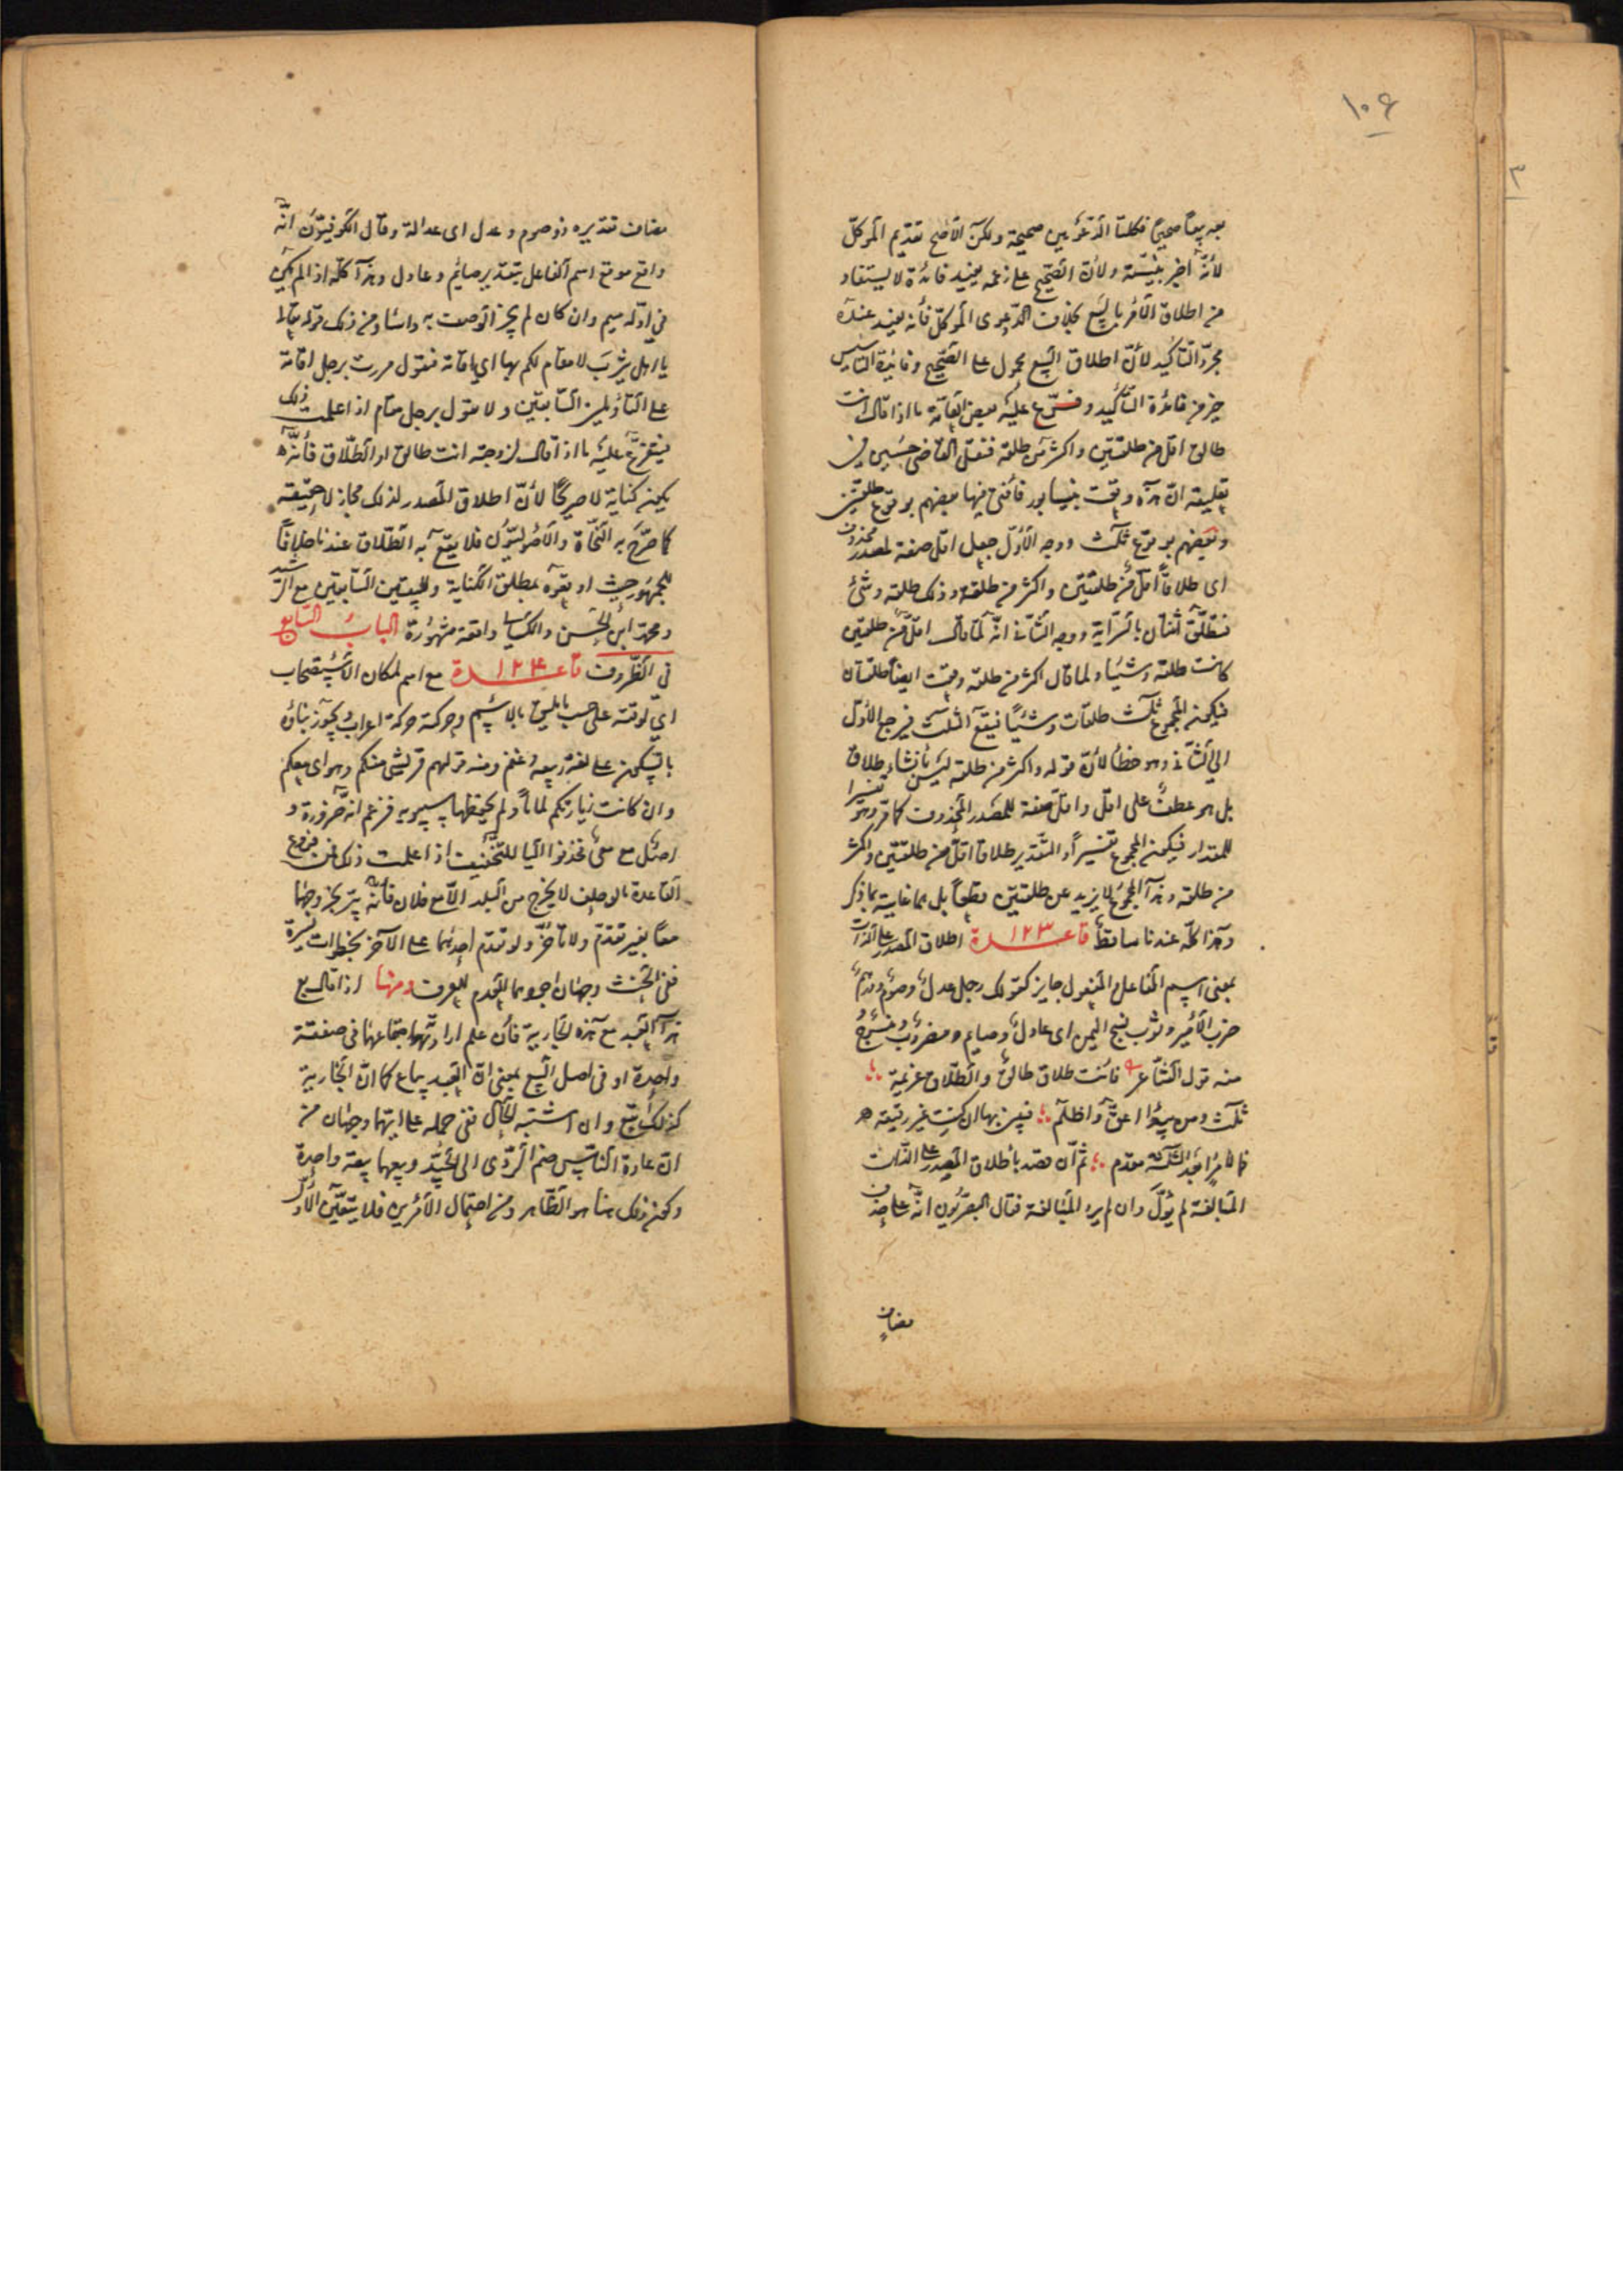 ١٠۶
بعه بيعاً صحيحاً فكلتا الدّعويين صحيحة ولكن الأصح تقديم الموكّل
لأنّه أخبر بنيّته ولأنّ الصّحيح على زعمه يفيد فائدة لا يستفاد
من اطلاق الأمر بالبيع بخلاف الدّعوى الموكّل فأنه يفيد عنده
مجرّد التأكيد لأنّ اطلاق البيع محمول على الصّحيح وفائدة التأسيس
خير من فائدة التأكيد وفرّع عليه بعض العامّة ما اذا قال انت
طالق اقل من طلقتين واكثر من طلقة فنقل القاضى حسين فى
تعليقه انّ هذه وقعت بنيسابور فأفتى فيها بعضهم بوقوع طلقتين
وبعضهم بوقوع ثلث ووجه الأوّل جعل اقل صفة لمصدر محذوف
اى طلاقاً اقلّ من طلقتين واكثر من طلقة وذلك طلقة وشئ
فتطلّق ثنتان بالسّراية ووجه الثّانى انّه لمّا قال اقلّ من طلقتين
كانت طلقة وشيئا ولما قال اكثر من طلقة وقعت ايضاً طلقتان
فيكون المجموع ثلث طلقات وشيئاً فيقع الثلث فيرجع الأوّل
الى الثّانى وهو خطأ لأنّ قوله واكثر من طلقة ليس بأنشاء طلاق
بل هو عطف على اقل واقل صفة للمصدر المحذوف كما مرّ وهو تفسيرا
للمقدار فيكون المجموع تفسيراً والتّقدير طلاقا اقلّ من طلقتين واكثر
من طلقة وهذا المجموع لا يزيد عن طلقتين قطعاً بل هما غايته بما ذكر
وهذا كلّه عندنا ساقط قاعدة ١٢٣ اطلاق المصدر على الذّات
بمعنى اسم الفاعل والمفعول جايز كقولك رجل عدلٌ وصومٌ ودرهمٌ
ضرب الأمير وثوب نسج اليمن اى عادل وصايم ومضروب ومنسوج
منه قول الشّاعر فانت طلاق طالق والطّلاق عزيمة
ثلث ومن يبدا اعقّ واظلم فبينى بها ان كنت غير رفيقة
فما لامرء بعد الثلثة مقدم ثمّ ان قصد بأطلاق المصدر على الذّات
المبالغة لم يؤوّل وان لم يرد المبالغة فقال البصريّون انّه على حذف
مضاف
مضاف تقديره ذو صوم وعدل اى عدالة وقال الكوفيّون انّه
واقع موقع اسم الفاعل بتقدير صائم وعادل وهذا كلّه اذا لم يكن
فى اوّله ميم وان كان لم يجز الوصف به واسًا ومن ذلك قوله تعالى
يا اهل يثرب لا مقام لكم بها اى اقامة فتقول مررت برجل اقامة
على التأويلين السّابقين ولا تقول برجل مقام اذا علمت ذلك
فيتفرّع عليه ما اذا قال لزوجته انت طالق او الطّلاق فأنّه
يكون كناية لا صريحًا لأنّ اطلاق المصدر لذلك مجاز لا حقيقته
كما صرّح به النّحاة والأصوليّون فلا يقع به الطّلاق عندنا خلافًا
للجمهور حيث اوقعوه بمطلق الكناية وللبيتين السّابقين مع الرّشيد
ومحمّد ابن الحسن والكسائى واقعة مشهورة الباب السّابع
فى الظّروف قاعدة ١٢٤ مع اسم لمكان الأستصحاب
او لوقته على حسب ما يليق بالاسم وحركته حركة اعراب ويجوز بناؤه
بالسكون على لغة ربيعة وغنم ومنه قولهم قريشى منكم وهواى معكم
وان كانت زيارتكم لماماً ولم يحفظها سيبويه فزعم انّه ضرورة و
اصل مع معى فحذفوا اليا للتّخفيف اذا علمت ذلك فمن فروع
القاعدة ما لو حلف لا يخرج من البلد الّا مع فلان فأنّه يبرّ بخروجهما
معاً بغير تقدّم ولا تأخّر ولو تقدّم احدهما على الآخر بخطوات يسيرة
ففى الحنث وجهان اجودهما العدم للعرف ومنها اذا قال بع
هذا العبد مع هذه الجارية فأن علم ارادتهما اجتماعهما فى صفقة
واحدة او فى اصل البيع بمعنى انّ العبد يباع كما انّ الجارية
كذلك اتّبع وان اشتبه الحال ففى حمله على ايّهما وجهان من
انّ عادة النّاس ضم الرّدى الى الجيّد وبيعهما بيعة واحدة
وكون ذلك هنا هو الظّاهر ومن احتمال الأمرين فلا يتعيّن الأوّل